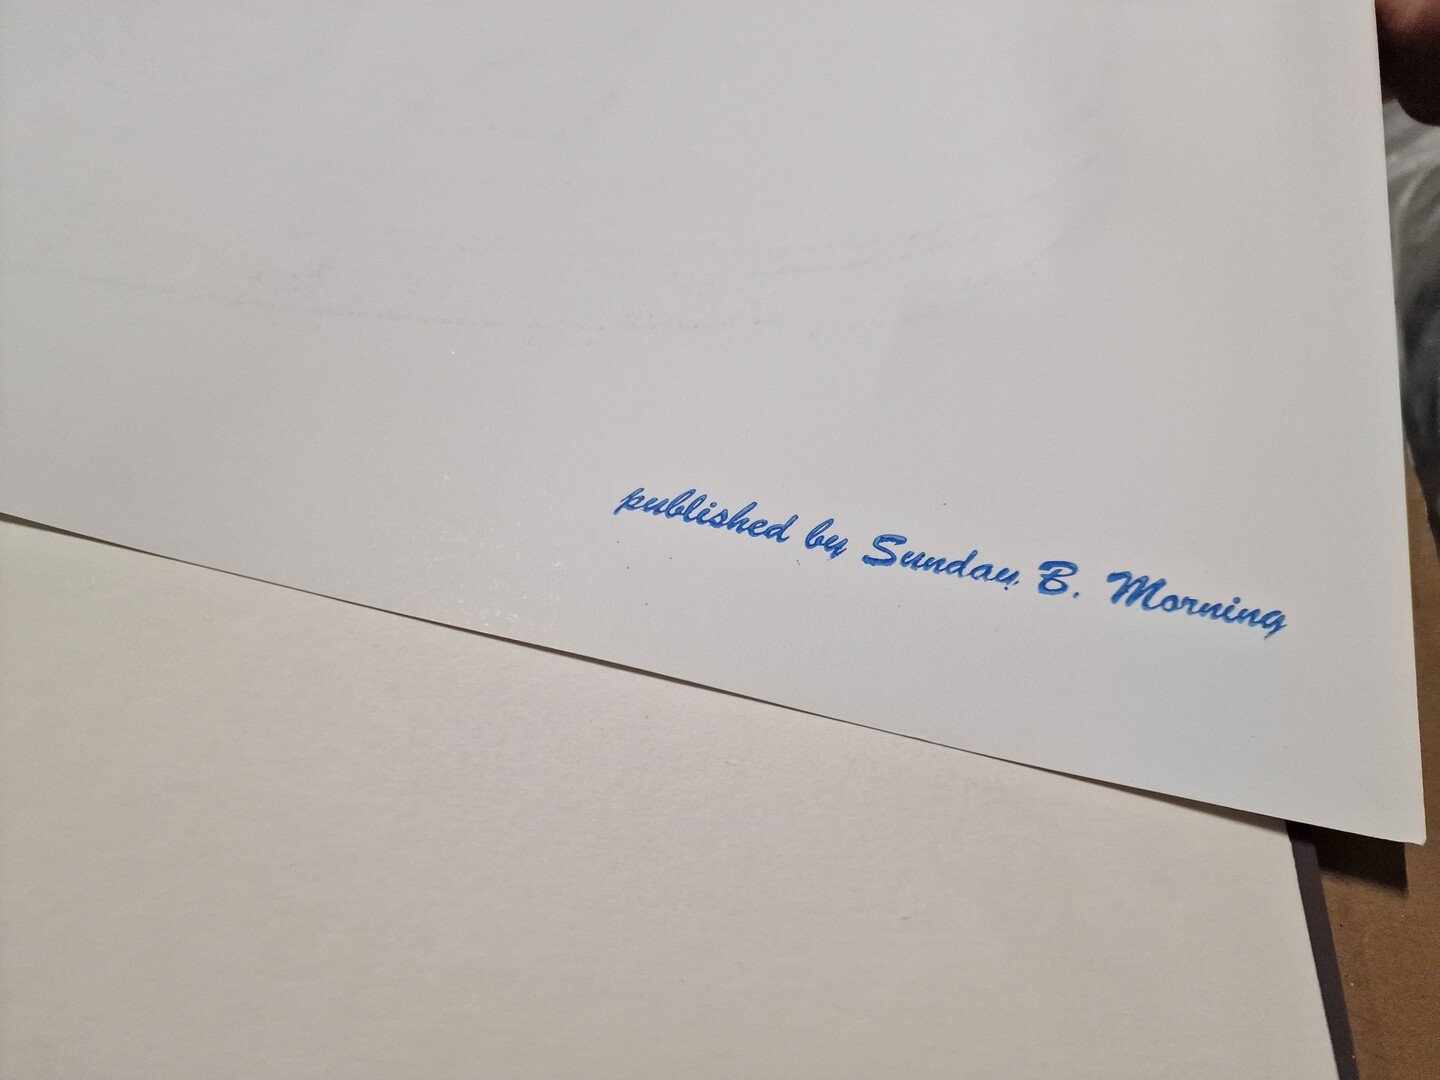 published by Sunday B. Morning